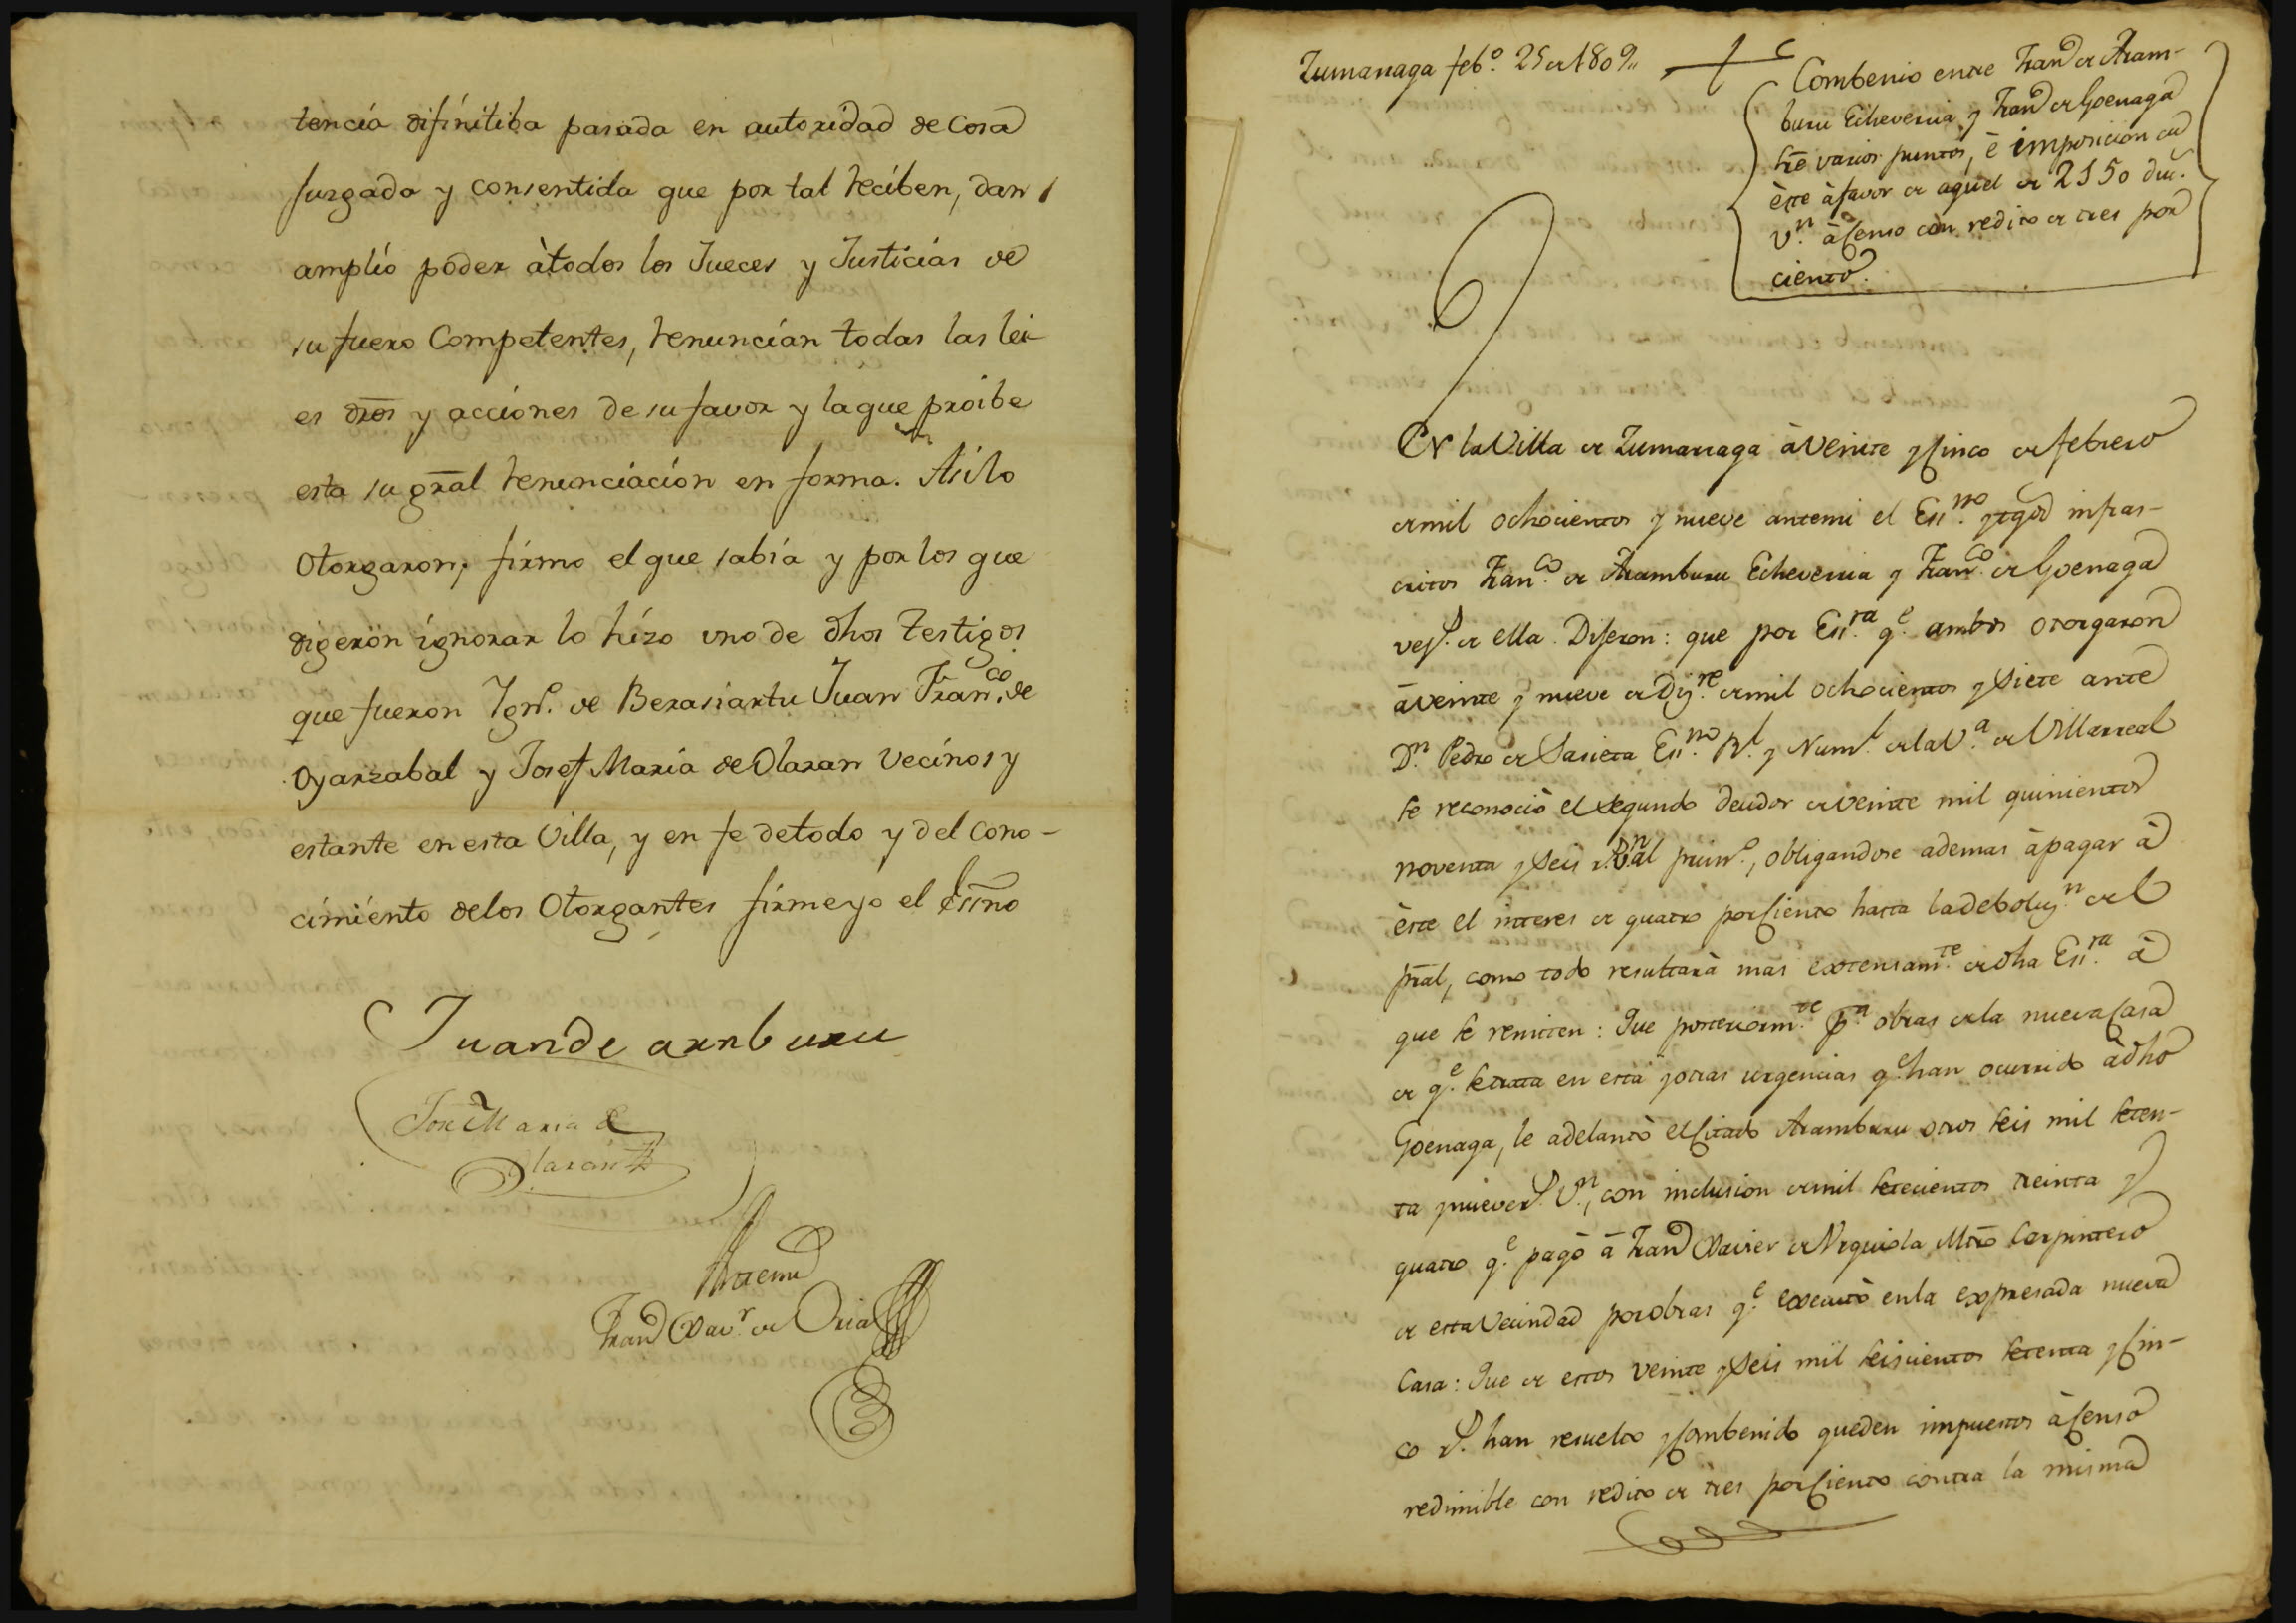 tencía difínitiba pasada en autoridad de Cosa
Juzgada y consentida que por tal recíben, dan
amplío poder àtodos los Jueces y Justicías de
su fuero Competentes, renuncían todas las lei-
es dros y acciones de su favor y laque proibe
esta su gral renunciacíon en forma. Asilo
Otorgaron, firmo el que sabía y por los que
digeron ignorar lo hízo uno de dhos Testigos
que fueron Ign.º de Berasiartu Juan Fran.co de
Oyarzabal y Josef María de Olaran Vecínos y
estante en esta Villa, y en fe detodo y del cono-
címiento delos Otorgantes fírmeyo el Essno
Juande aranburu
Jose Maria de
Olaran
Antemi
Fran.co Xav.r de Oria
Zumarraga feb.o 25 de 1809
Combenio entre Fran.co de Aram-
buru Echeverria y Fran.co de Goenaga
sre varios puntos, è imposicion de
èste àfavor de aquel de 2150 duc.s
V.n àCenso con redito de tres por
ciento.
En laVilla de Zumarraga àVeinte yCinco de febrero
demil ochocientos y nueve antemi el Ess.no ytgos infras-
critos Fran.co de Aramburu Echeverria y Fran.co de Goenaga
vez.s de ella. Diferon: que por Ess.ra q.e ambos otorgaron
àveinte y nueve de Diz.re demil ochocientos ySiete ante
D.n Pedro de Sasieta Ess.no R.l y Num.l delaV.a de Villarreal
se reconociò el segundo deudor deveinte mil quinientos
noventa ySeis r.s V.n al prim.o, obligandose ademas àpagar à
èste el interes de quatro porCiento hasta ladeboluz.n del
pral, como todo resultarà mas extensam.te dedha Ess.ra à
que se remiten: Que posteriorm.te p.a obras dela nuevaCasa
de q.e setrata en esta yotras urgencias q.e han ocurrido àdho
Goenaga, le adelantò elCitado Aramburu otros seis mil seten-
ta ynueve r.s V.n, con inclusion demil setecientos treinta y
quatro q.e pagò à Fran.co Xavier de Urquiola Mtro Carpintero
de estaVecindad porobras q.e executò enla expresada nueva
Casa: Que de estos veinte ySeis mil seiscientos setenta yCin-
co r.s han resuelto yCombenido queden impuestos àCenso
redimible con redito de tres porCiento contra la misma